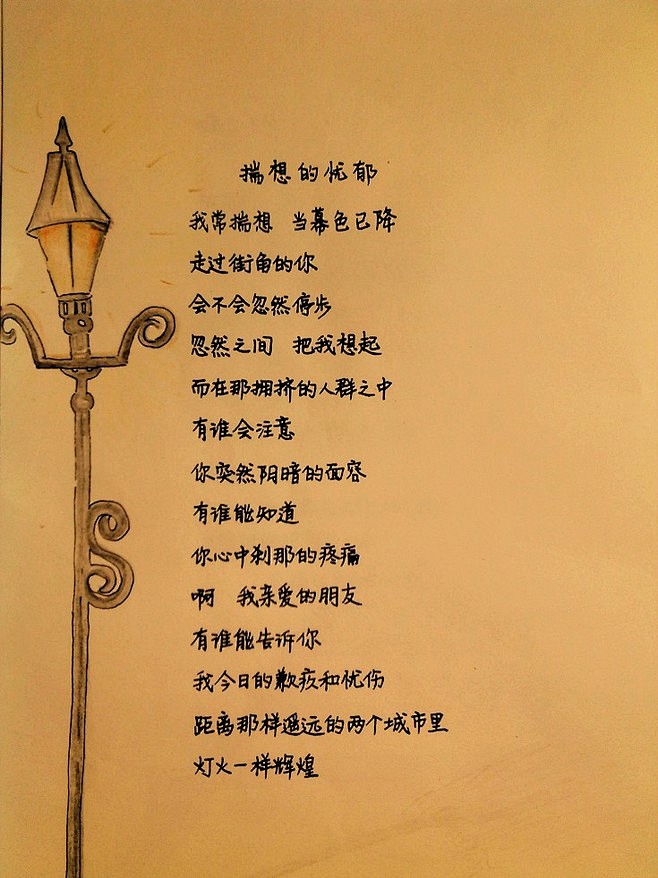 揣想的忧郁
我常揣想 当幕色已降
走过街角的你
会不会忽然停步
忽然之间 把我想起
而在那拥挤的人群之中
有谁会注意
你突然阴暗的面容
有谁能知道
你心中刹那的疼痛
啊 我亲爱的朋友
有谁能告诉你
我今日的歉疚和忧伤
距离那样遥远的两个城市里
灯火一样辉煌